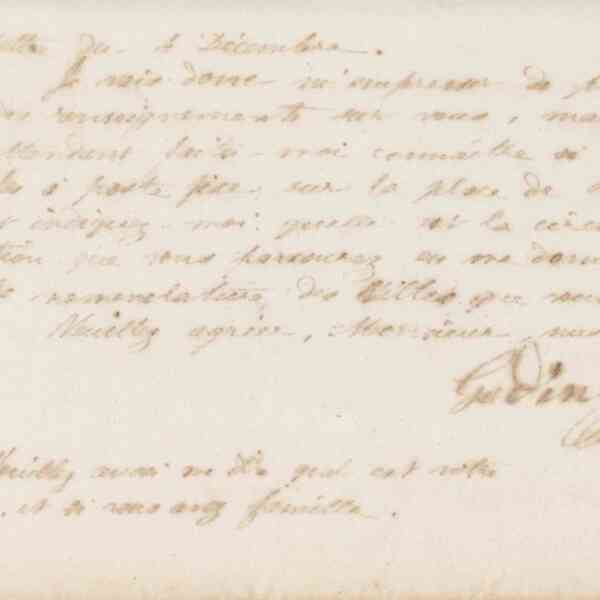 du 4 Décembre.
Je vais donc m'empresser de
renseignements sur vous, mais
attendant faites-moi connaître si
à poste fixe, sur la place de
indiquez-moi: quelle est la
que vous parcourez en me
nomenclature des Villes que
Veuillez agréer, Monsieur,
Godin
Veuillez aussi me dire quel est votre
, et si vous avez famille.